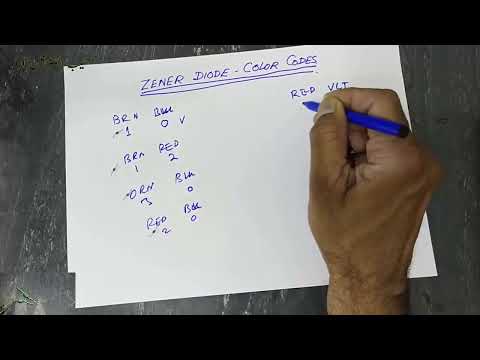 ZENER DIODE - COLOR CODES
BRN BLK
1 0 V
BRN RED
1 2
ORN BLK
3 0
RED BLK
2 0
RED VLT